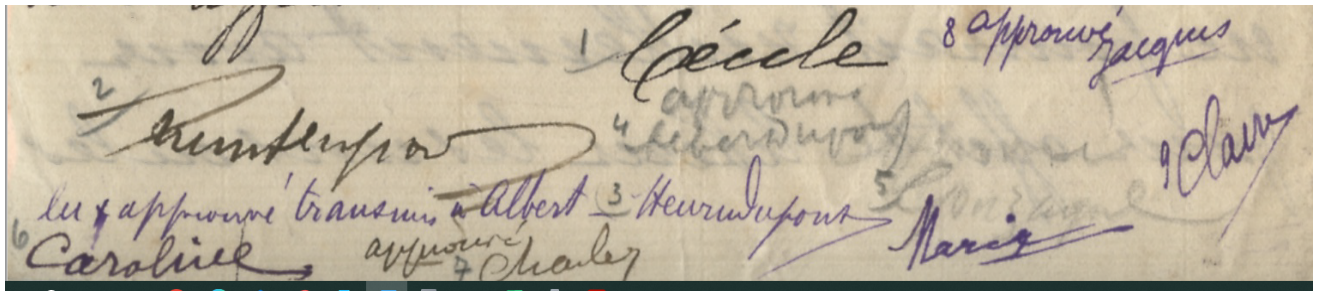 1 Cécile
8 approuvé Jacques
2
approuvé
4 Dupont
9 Claire
lu & approuvé transmis à Albert _ 3 Henri Dupont
5
Marie
6 Caroline
approuvé
7 Charles